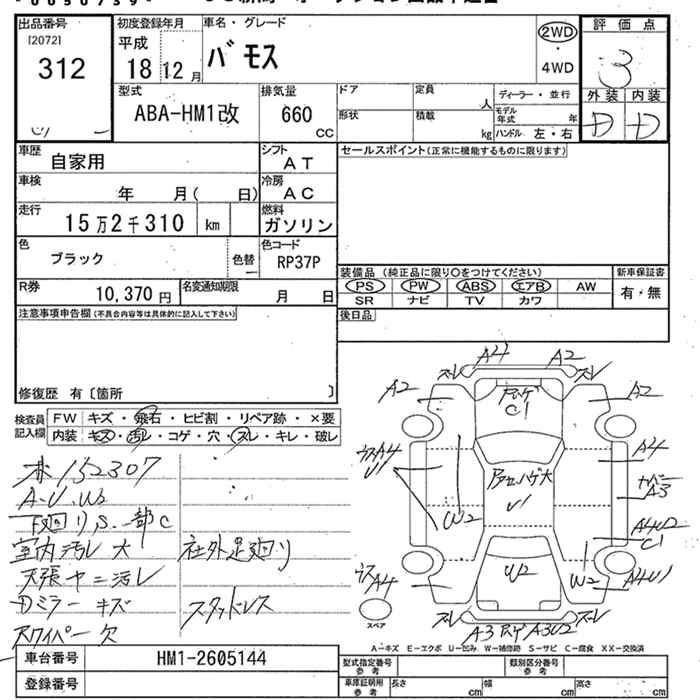 出品番号
[2072]
312
初度登録年月
平成
18 12月
車名・グレード
バモス
2WD
・
4WD
評価点
3
外装 内装
D D
型式
ABA-HM1改
排気量
660
CC
ドア
定員
人
形状
積載
kg
ディーラー・並行
モデル年式 年
ハンドル 左・右
車歴
自家用
シフト
AT
車検
年 月( 日)
冷房
AC
走行
15万2千310 km
燃料
ガソリン
色
ブラック
色替
色コード
RP37P
R券
10,370 円
名変通知期限
月 日
セールスポイント(正常に機能するものに限ります)
装備品(純正品に限り○をつけてください)
PS PW ABS エアB AW
SR ナビ TV カワ
新車保証書
有・無
後日品
注意事項申告欄(不具合内容等は具体的に記入して下さい)
修復歴 有〔箇所 〕
検査員
記入欄
FW キズ・飛石・ヒビ割・リペア跡・×要
内装 キズ・汚レ・コゲ・穴・スレ・キレ・破レ
152307
A-U.W2
下廻りS.一部C
室内汚レ大
社外足廻り
天張ヤニ汚レ
Dミラーキズ
スタッドレス
Rワイパー欠
ズレ A4 A2 ズレ
A2
A2
C1
A4
U1
A4
A3
U1
W2
A4U2
C1
W2
W2
A4
A4U1
スペア
ズレ
ズレ
A3
A3U2
A-キズ E-エクボ U-凹み W-補修跡 S-サビ C-腐食 XX-交換済
車台番号
HM1-2605144
登録番号
型式指定番号
参考
類別区分番号
参考
車庫証明用
参考
長さ cm
幅 cm
高さ cm